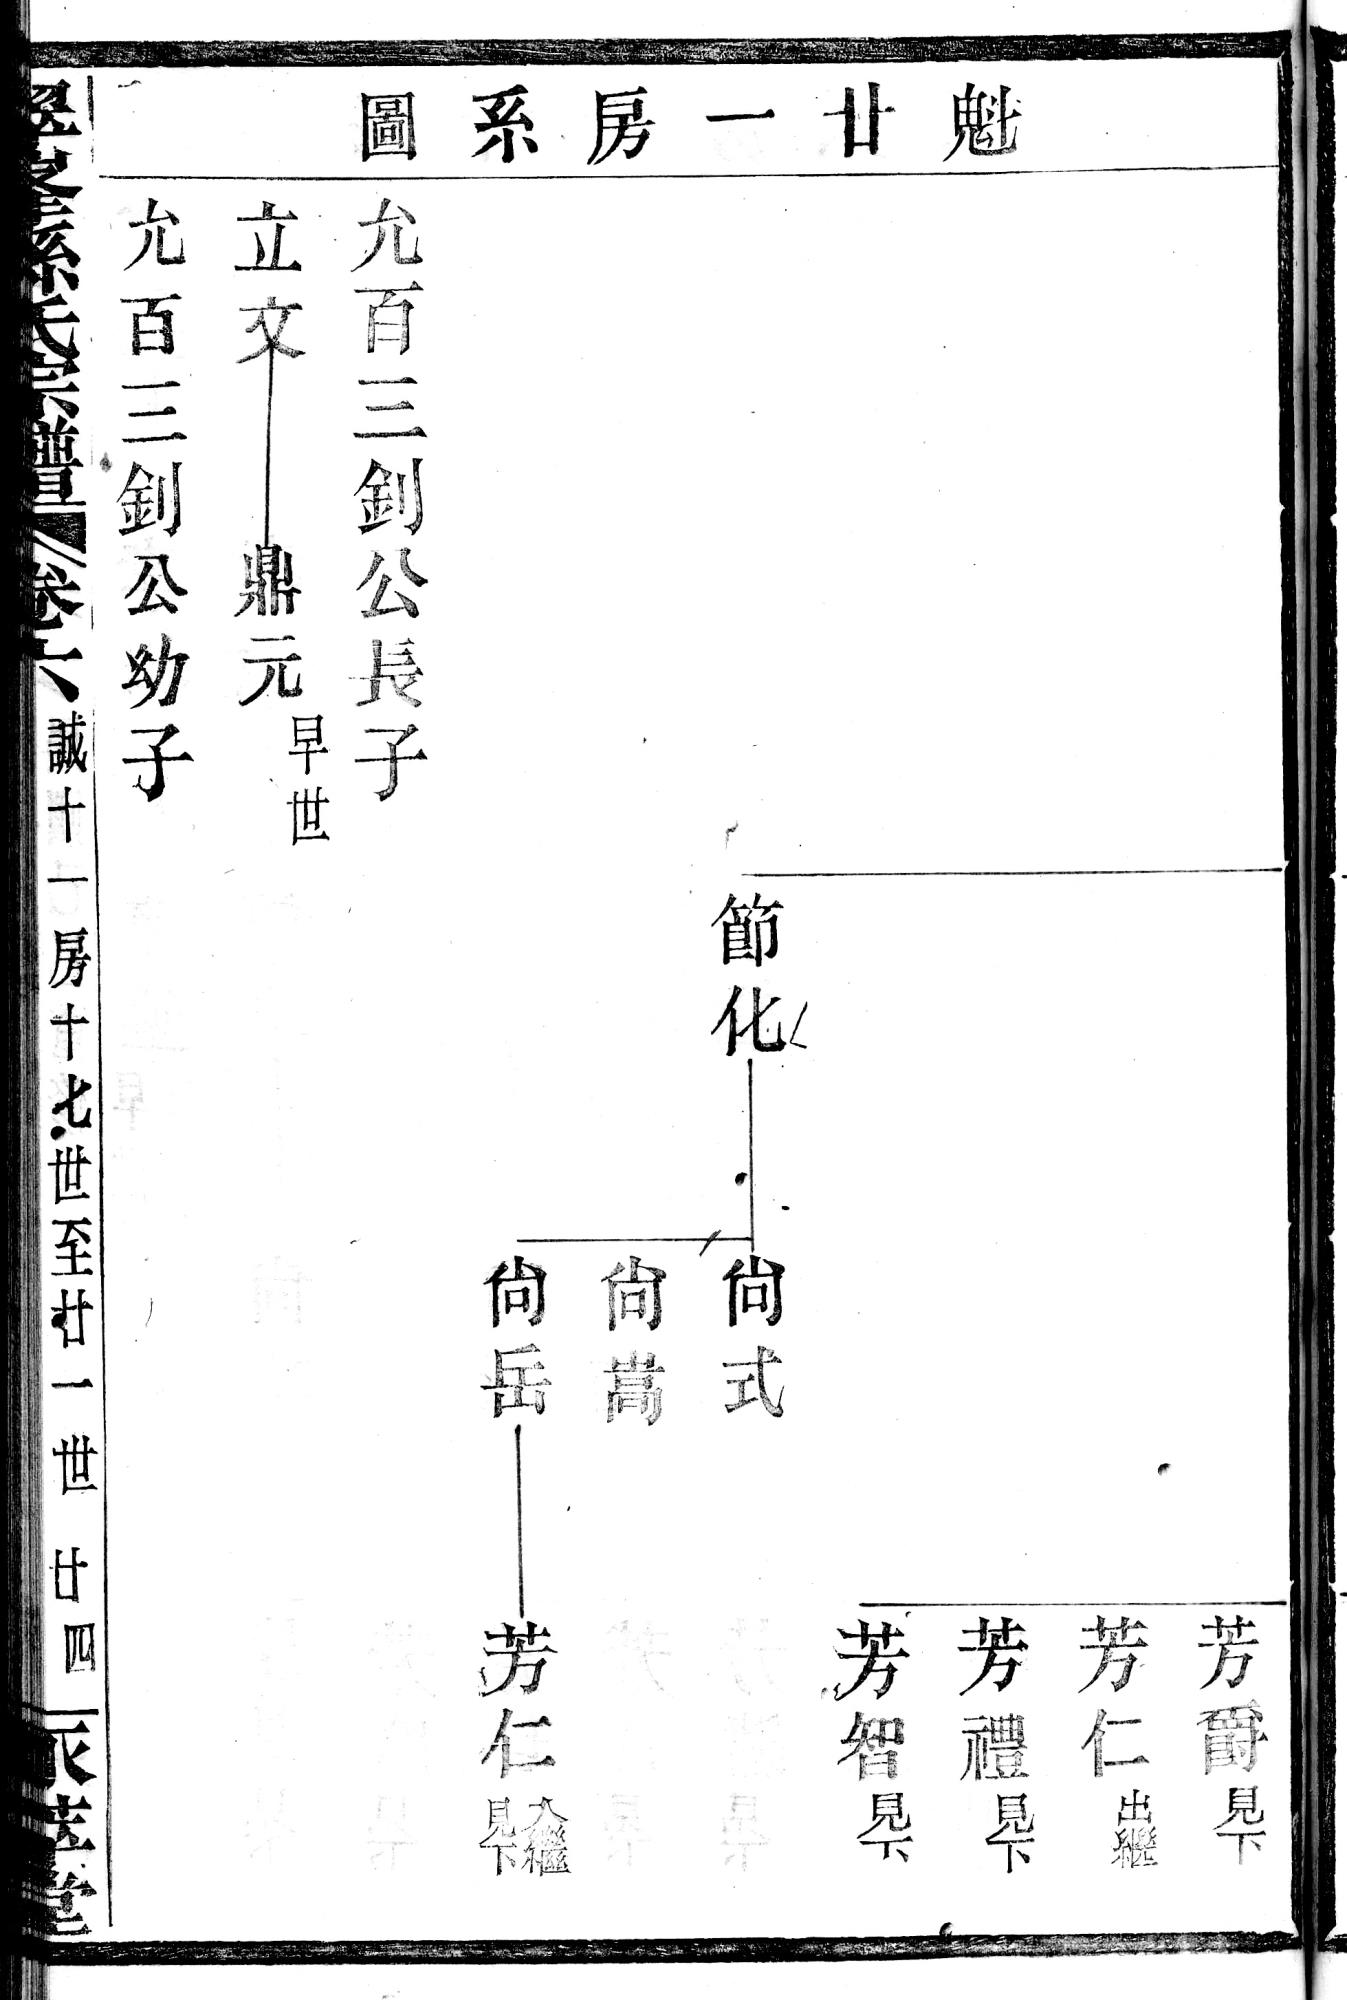 魁廿一房系圖
芳爵 見下
芳仁 出繼
芳禮 見下
芳智 見下
節化
尙式
尙嵩
尙岳
芳仁 入繼見下
允百三釗公長子
立文
鼎元 早世
允百三釗公幼子
孫氏宗譜 卷六 誠十一房十七世至廿一世 廿四